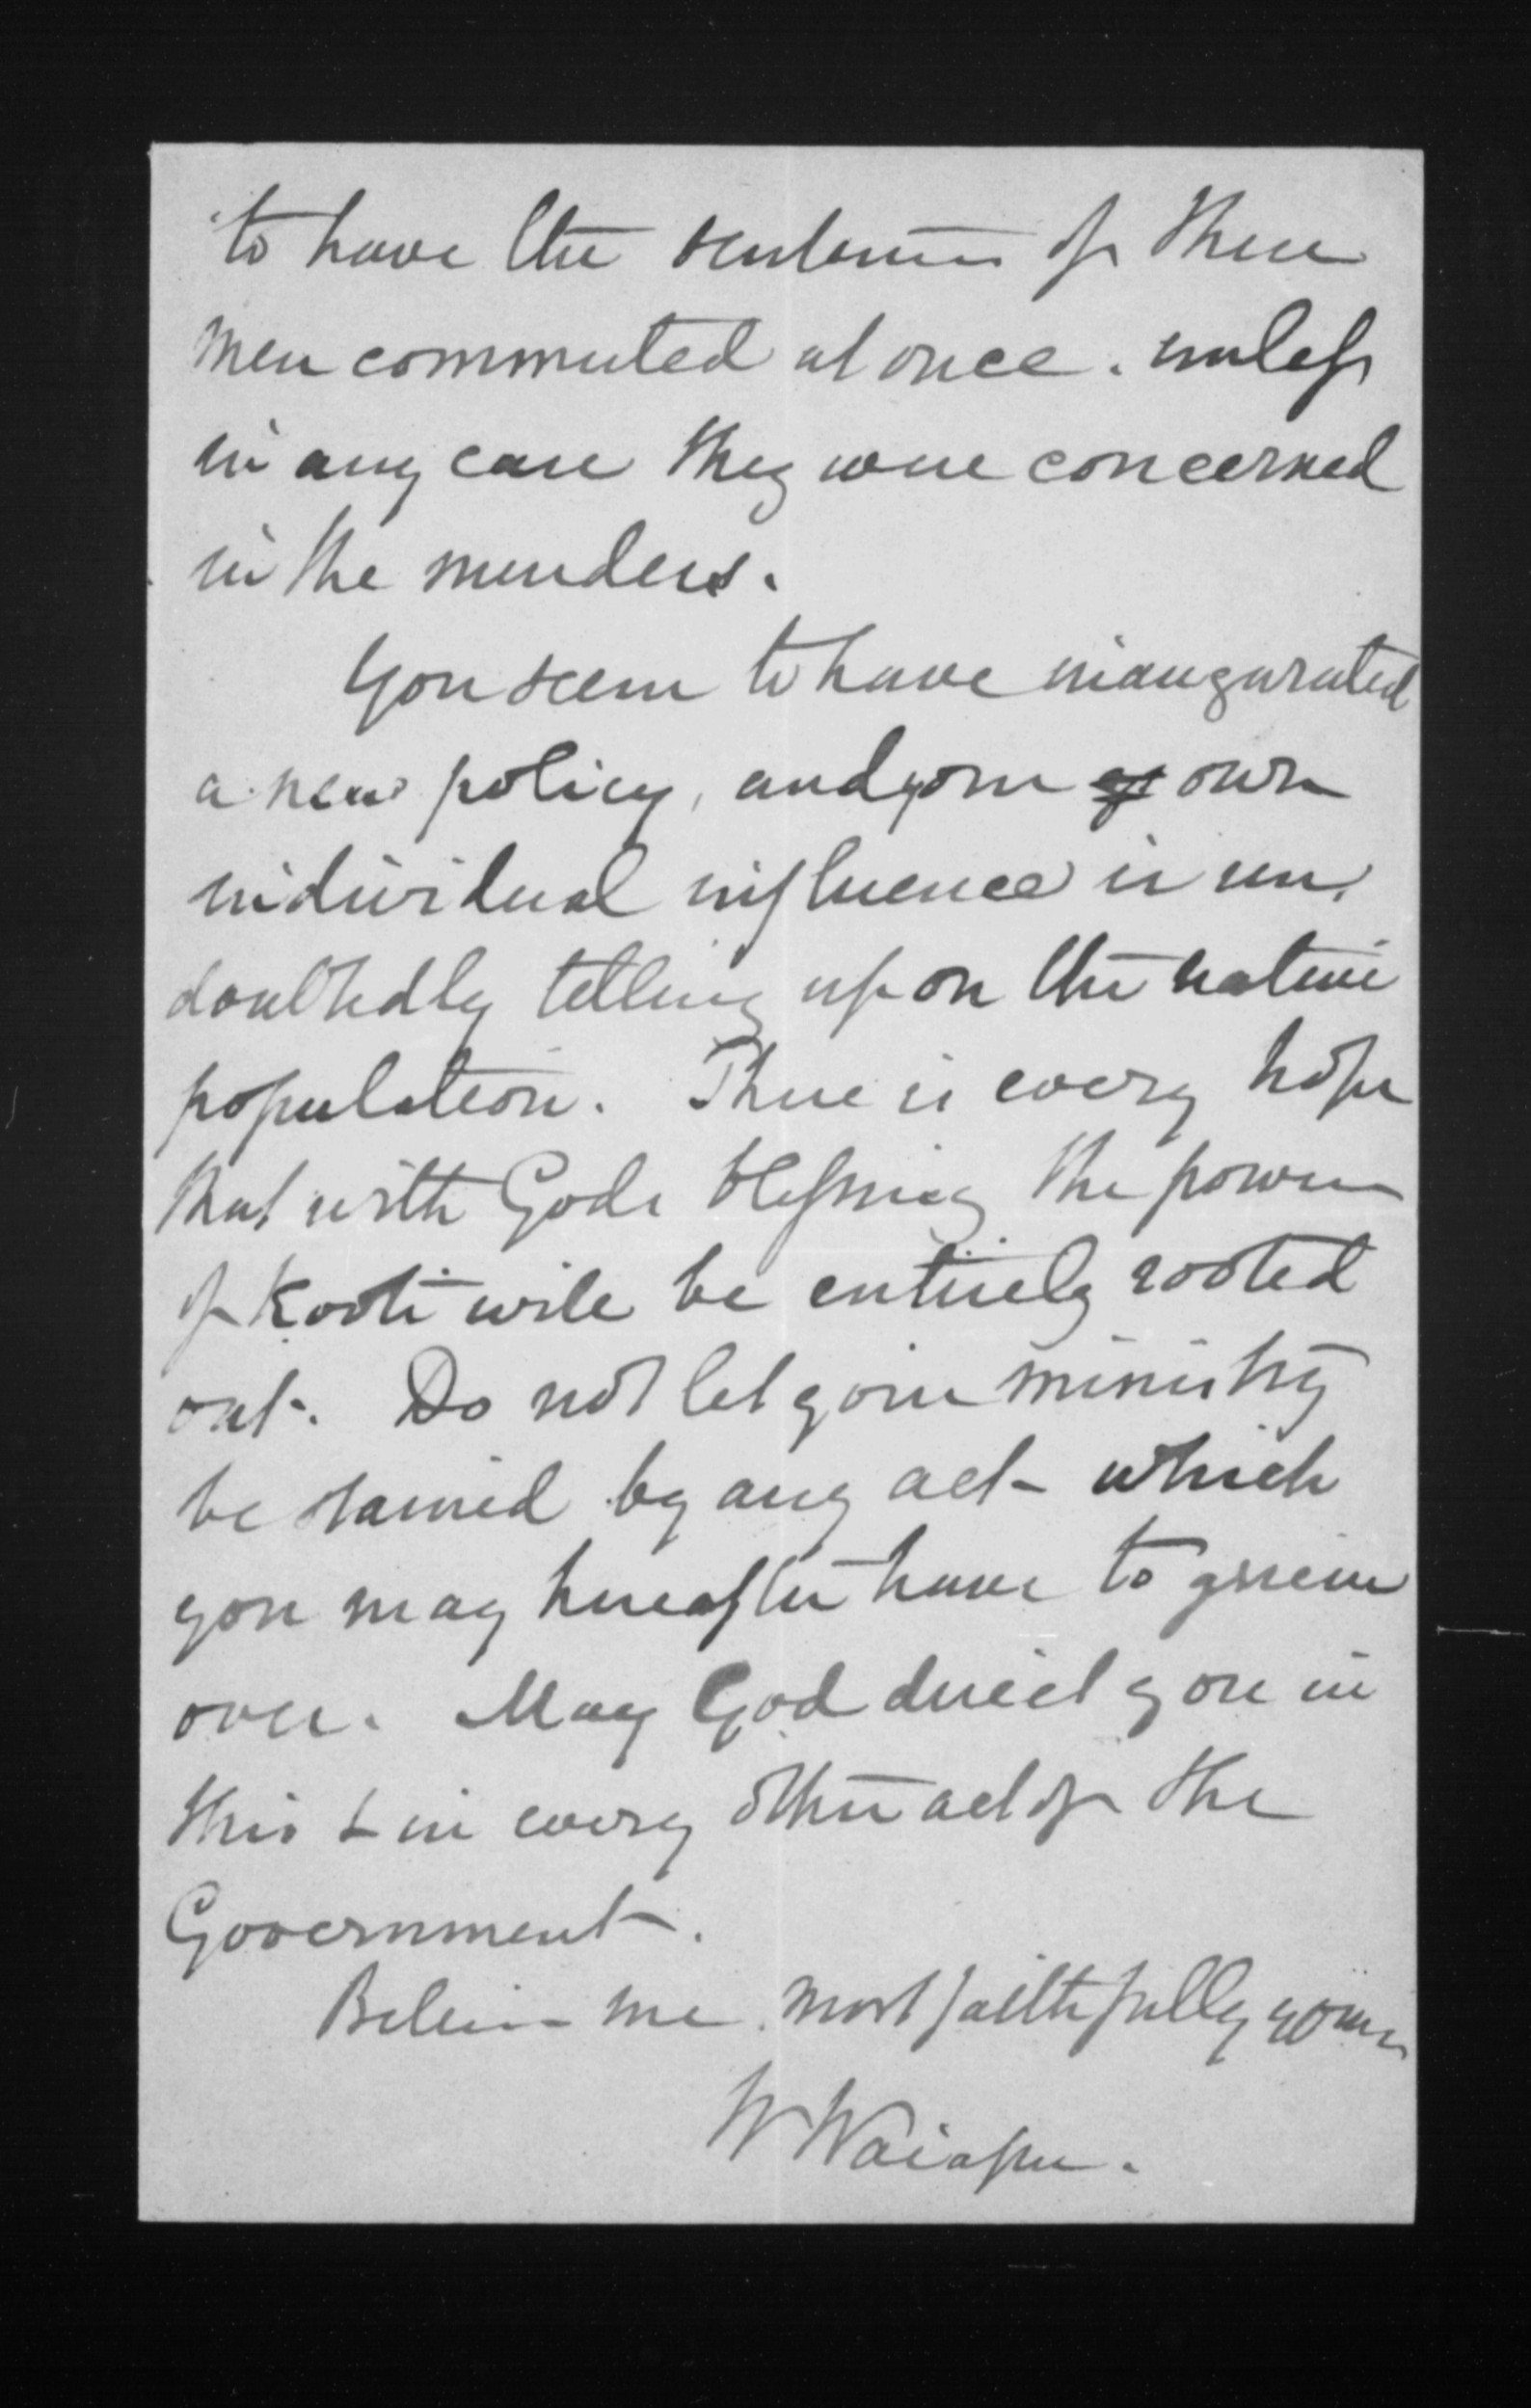 to have the sentences of these
men commuted at once. unless
in any case they were concerned
in the murders.
You seem to have inaugurated
a new policy, and your own
individual influence is un
doubtedly telling upon the native
population. There is every hope
that with Gods blessing the power
of Kooti will be entirely rooted
out. Do not let your ministry
be stained by any act which
you may hereafter have to grieve
over. May God direct you in
this & in every other act of the
Government.
Believe me most faithfully yours
W Waiapu.